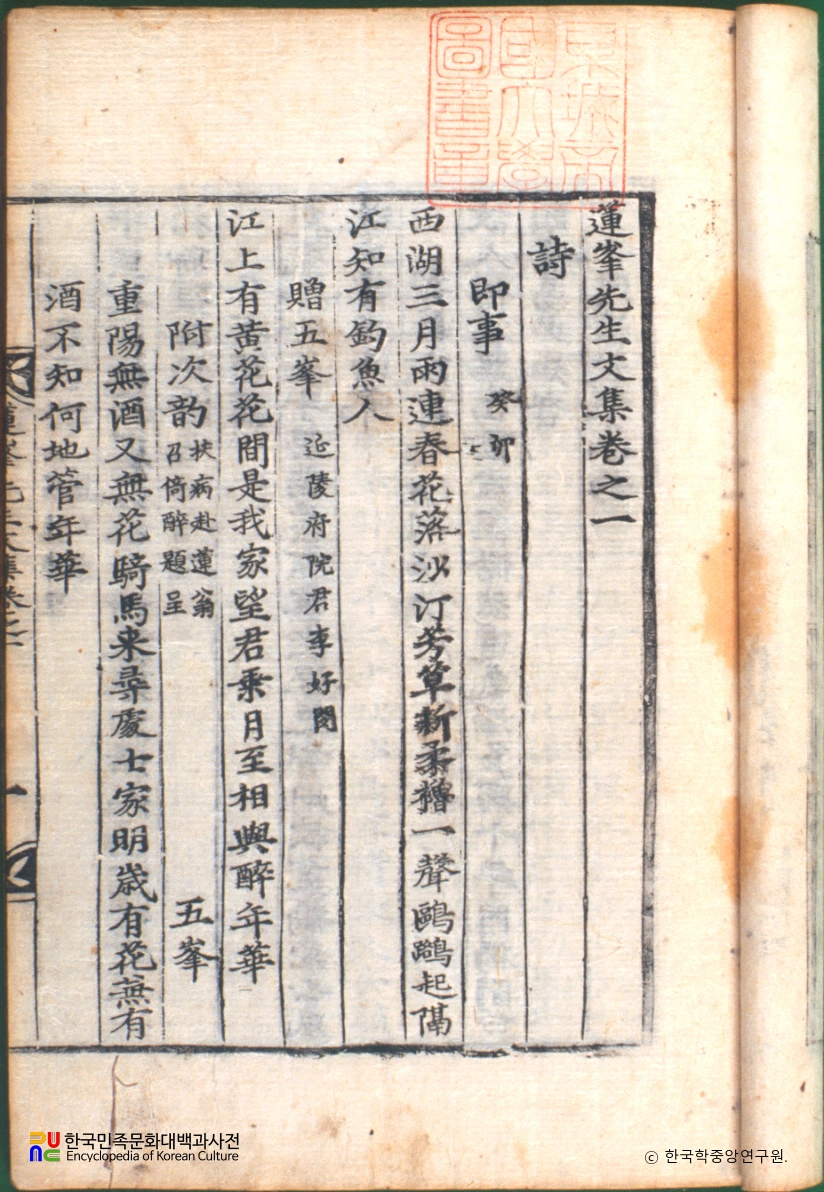 蓮峯先生文集卷之一
詩
即事 癸卯
西湖三月雨連春花落沙汀芳草新柔艣一聲鷗鷺起隔
江知有釣魚人
贈五峯 延陵府院君李好閔
江上有黄花花間是我家望君乘月至相與醉年華
附次韵 扶病赴蓮翁
召倚醉題呈 五峯
重陽無酒又無花騎馬来尋處士家明歳有花蕪有
酒不知何地管年華
한국민족문화대백과사전
Encyclopedia of Korean Culture
© 한국학중앙연구원.